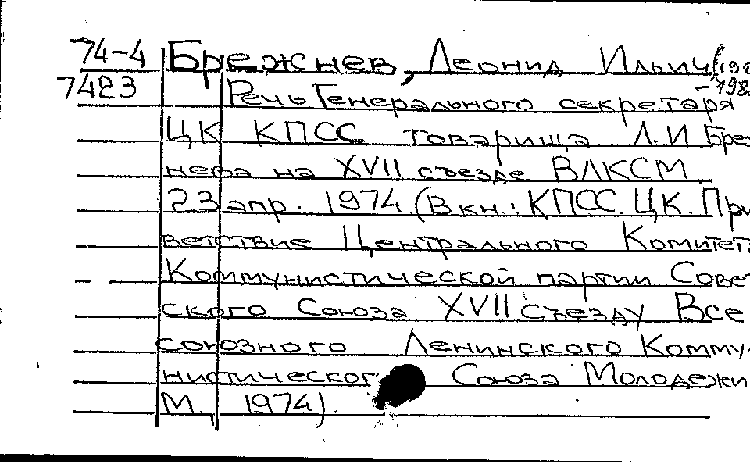 74-4 Брежнев, Леонид Ильич (190
7423 Речь Генерального секретаря -198
ЦК КПСС товарища Л.И Бреж
нева на XVII съезде ВЛКСМ
23 апр. 1974 (В кн.: КПСС. ЦК. При
ветствие Центрального Комитета
Коммунистической партии Совет
ского Союза XVII съезду Все
союзного Ленинского Комму-
нистического Союза Молодежи
М., 1974).